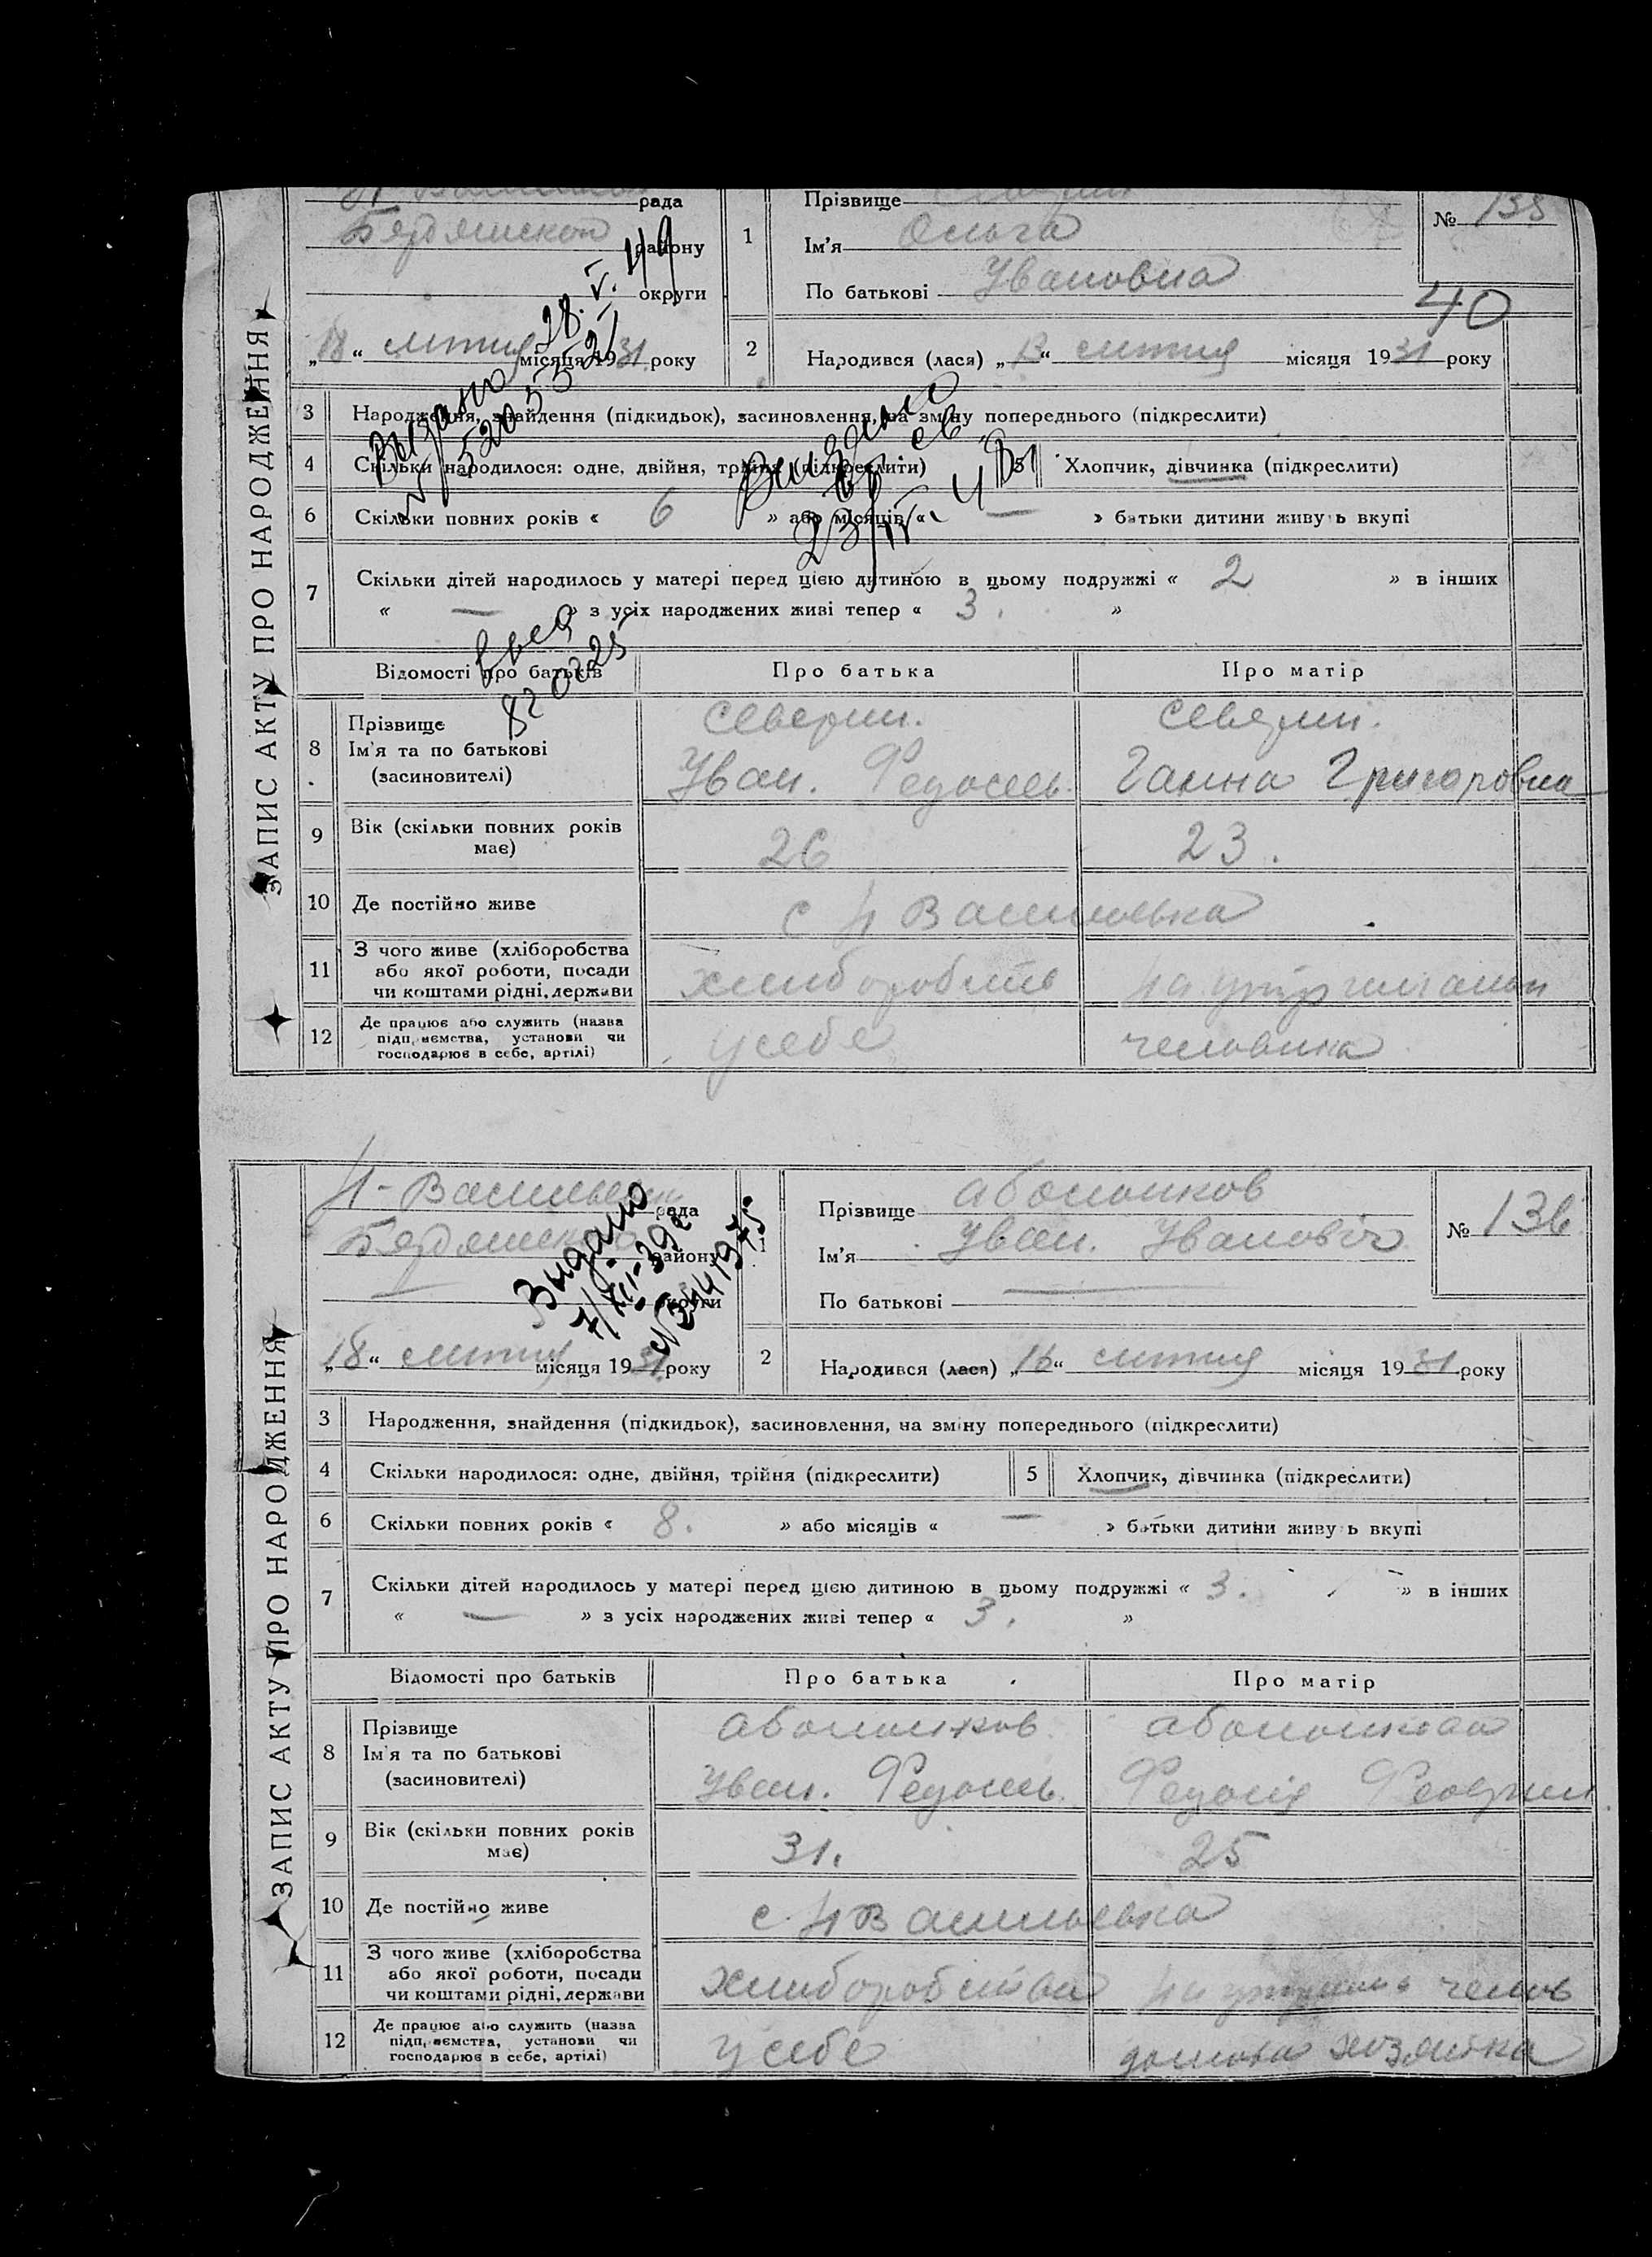 рада
Бердянского району
округи
„18“ лютня місяця 1931 року
1
Прізвище
Ім'я Ольга
По батькові Ивановна
№ 135
40
2
Народився (лася) „13“ лютня місяця 1931 року
ЗАПИС АКТУ ПРО НАРОДЖЕННЯ
3 Народження, знайдення (підкидьок), засиновлення, на зміну попереднього (підкреслити)
4 Скільки народилося: одне, двійня, трійня (підкреслити) 5 Хлопчик, дівчинка (підкреслити)
6 Скільки повних років « 6 » або місяців « — » батьки дитини живуть вкупі
7 Скільки дітей народилось у матері перед цією дитиною в цьому подружжі « 2 » в інших
« — » з усіх народжених живі тепер « 3. »
Відомості про батьків Про батька Про матір
8 Прізвище Северин. Северин.
Ім'я та по батькові Иван. Федосеев. Ганна Григоровна
(засиновителі)
9 Вік (скільки повних років має) 26 23.
10 Де постійно живе с Н Василювка
11 З чого живе (хліборобства
або якої роботи, посади
чи коштами рідні, держави
12 Де працює або служить (назва
підприємства, установи чи
господарює в себе, артілі)
у себе человика
Видано
28. V. 49
Н-Васильевск рада
Бердянского району
округи
„18“ лютня місяця 1931 року
Видано
7/XII-39г
№ 3441975
1
Прізвище Аболонков
Ім'я Иван. Иванович
По батькові —
№ 136
2
Народився (лася) „16“ лютня місяця 1931 року
ЗАПИС АКТУ ПРО НАРОДЖЕННЯ
3 Народження, знайдення (підкидьок), засиновлення, на зміну попереднього (підкреслити)
4 Скільки народилося: одне, двійня, трійня (підкреслити) 5 Хлопчик, дівчинка (підкреслити)
6 Скільки повних років « 8. » або місяців « — » батьки дитини живуть вкупі
7 Скільки дітей народилось у матері перед цією дитиною в цьому подружжі « 3. » в інших
« — » з усіх народжених живі тепер « 3. »
Відомості про батьків Про батька Про матір
8 Прізвище Аболонков
Ім'я та по батькові Иван. Федосеев.
(засиновителі)
9 Вік (скільки повних років має) 31. 25
10 Де постійно живе с. Н Васильевка
11 З чого живе (хліборобства
або якої роботи, посади
чи коштами рідні, держави
хлиборобства
12 Де працює або служить (назва
підприємства, установи чи
господарює в себе, артілі)
у себе домова хозяйка